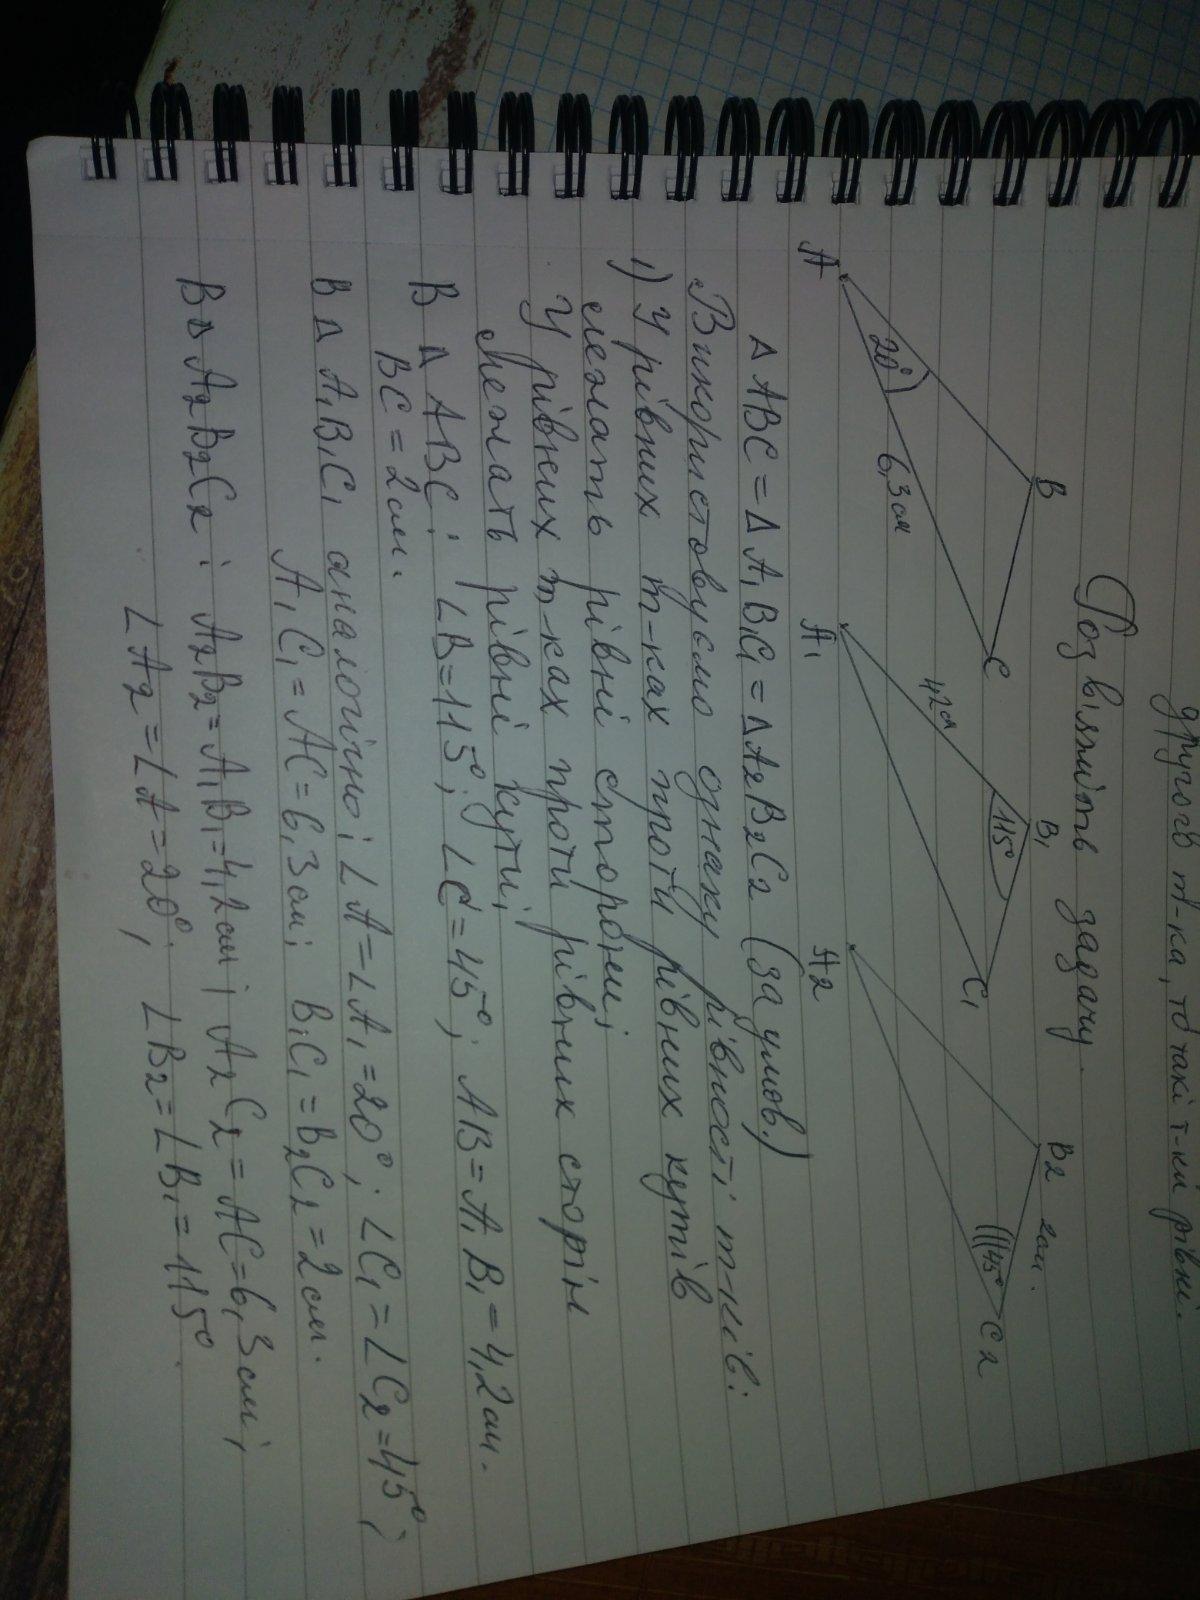 другого т-ка, то такі т-ки рівні.
Розв'яжіть задачу.
B B₁ B₂ 2см.
20° 6,3см C 4,2см 115° C₁ 45° C₂
A A₁ A₂
Δ ABC = Δ A₁B₁C₁ = Δ A₂B₂C₂ (за умов.)
Використовуємо ознаку рівності т-ків:
1) У рівних т-ках проти рівних кутів
лежать рівні сторони;
У рівних т-ках проти рівних сторін
лежать рівні кути;
В Δ ABC: ∠B = 115°; ∠C = 45°; AB = A₁B₁ = 4,2см.
BC = 2см.
В Δ A₁B₁C₁ аналогічно: ∠A = ∠A₁ = 20°; ∠C₁ = ∠C₂ = 45°;
A₁C₁ = AC = 6,3см; B₁C₁ = B₂C₂ = 2см.
В Δ A₂B₂C₂: A₂B₂ = A₁B₁ = 4,2см; A₂C₂ = AC = 6,3см;
∠A₂ = ∠A = 20°; ∠B₂ = ∠B₁ = 115°.